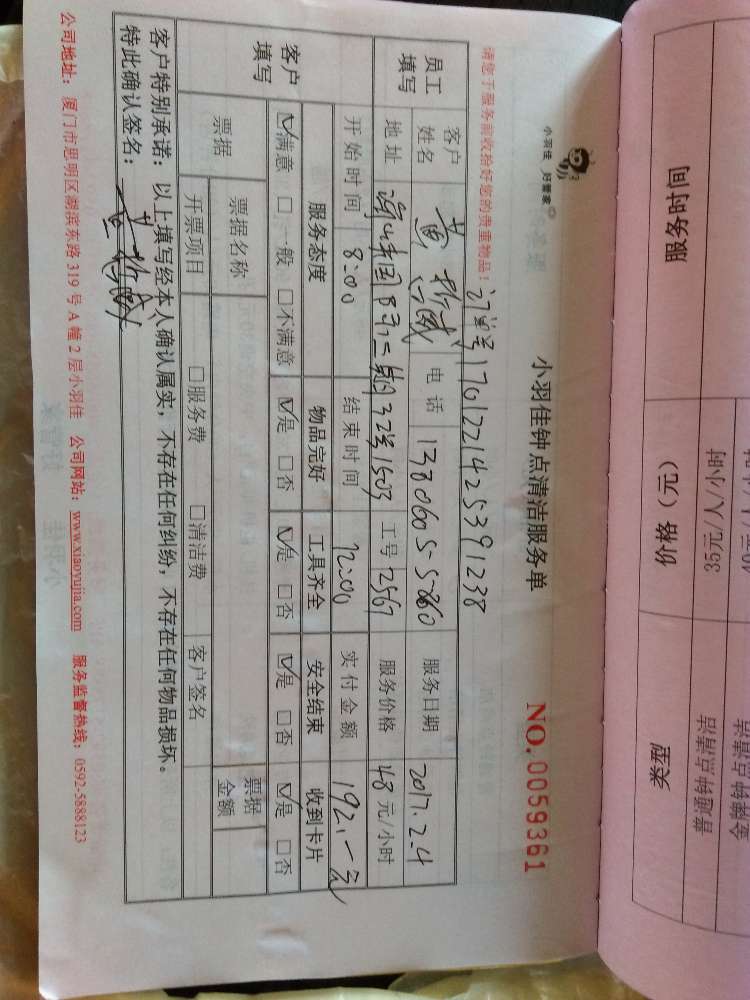 小羽佳 好管家
小羽佳钟点清洁服务单
NO. 0059361
请您于服务前收拾好您的贵重物品!
订单号1701221425391238
员工填写
客户姓名 黄 电话 服务日期 2017.2.4
地址 32号1503 工号 2567 服务价格 48元/小时
开始时间 8:00 结束时间 12:00 实付金额 192.一元
客户填写
服务态度 物品完好 工具齐全 安全结束 收到卡片
☑满意 □一般 □不满意 ☑是 □否 ☑是 □否 ☑是 □否 ☑是 □否
票据 票据名称 票据金额
开票项目 □服务费 □清洁费 客户签名
客户特别承诺:以上填写经本人确认属实,不存在任何纠纷,不存在任何物品损坏。
特此确认签名:
公司地址:厦门市思明区湖滨东路319号A幢2层小羽佳 公司网站:www.xiaoyujia.com 服务监督热线:0592-5888123
服务时间
价格(元) 35元/人/小时
类型 普通钟点清洁 金牌钟点清洁